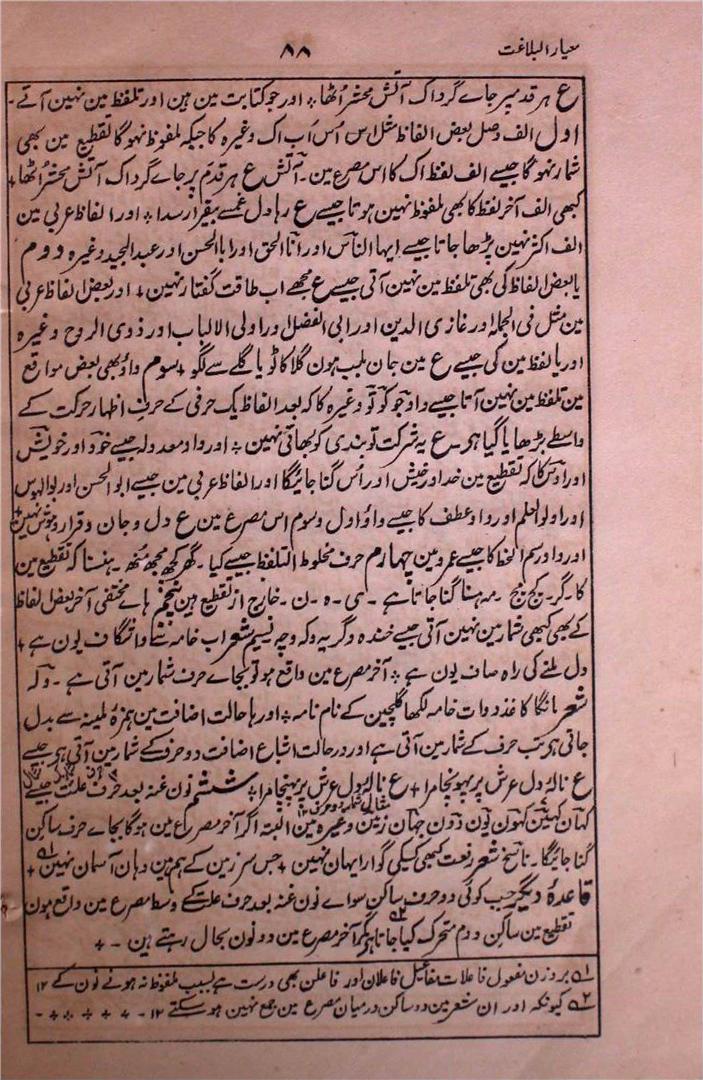 معیار البلاغت
۸۸
ع ہر قدم پر جاے گرد اک آتش محشر اُٹھا ؞ اور جو کتابت مین ہین اور تلفظ مین نہین آتے ۔
اول الف وصل بعض الفاظ مثل اس اُس اَب اک وغیرہ کا جبکہ ملفوظ نہوگا تقطیع مین بھی
شمار نہوگا جیسے الف لفظ اک کا اس مصرع مین ۔ آتش ع ہر قدم پر جاے گرد اک آتش محشر اُٹھا +
کبھی الف آخر لفظ کا بھی ملفوظ نہین ہوتا جیسے ع رہا دل غمسے بیقرار سدا ؞ اور الفاظ عربی مین
الف اکثر نہین پڑھا جاتا جیسے ایہا الناس اور انا الحق اور ابا الحسن اور عبد المجید وغیرہ دوم
یا بعض الفاظ کی بھی تلفظ مین نہین آتی جیسے ع مجھے اب طاقت گفتار نہین + اور بعض الفاظ عربی
مین مثل فی الجملہ اور غازی الدین اور ابی الفضل اور اولی الالباب اور ذوی الروح وغیرہ
اور یا لفظ مین کی جیسے ع مین جان بلب ہون گلا کاٹو یا گلے سے لگو + سوم واؤ بھی بعض مواقع
مین تلفظ مین نہین آتا جیسے واو جو کو تو وغیرہ کا کہ بعد الفاظ یک حرفی کے حرف اظہار حرکت کے
واسطے بڑھایا گیا ہو ۔ ع یہ شرکت تو بندی کو بھاتی نہین ؞ اور واو معدولہ جیسے خود اور خویش
اور اوس کا کہ تقطیع مین خد اور خیش اور اُس گنا جائیگا اور الفاظ عربی مین جیسے ابو الحسن اور بو الہوس
اور اولو العلم اور واو عطف کا جیسے واؤ اول و سوم اس مصرع مین ع دل و جان و قرار و ہوش نہین +
اور واو رسم الخط کا جیسے عمرو مین چہارم حرف مخلوط التلفظ جیسے کیا ۔ گھر کچھ مجھ مُنھ ۔ ہنسنا کہ تقطیع مین
کا ۔ گر ۔ کج مج ۔ مہ ہسنا گنا جاتا ہے ۔ ی ۔ ہ ۔ ن ۔ خارج از تقطیع ہین پنجم ہاے مختفی آخر بعض الفاظ
کے بھی کبھی شمار مین نہین آتی جیسے خندہ و گریہ و کہ و چہ نسیم شعر اب خامہ سے وا شگاف یون ہے +
دل ملنے کی راہ صاف یون ہے ؞ آخر مصرع مین واقع ہو تو بجاے حرف شمار مین آتی ہے ۔ ولہ
شعر مانگا کاغذ دوات خامہ لکھا گلچین کے نام نامہ ؞ اور ہا حالت اضافت مین ہمزۂ ملینہ سے بدل
جاتی ہو تب حرف کے شمار مین آتی ہے اور در حالت اشباع اضافت دو حرف کے شمار مین آتی ہے جیسے
ع نالۂ دل عرش پر پہونچا مرا + ع نالۂ دل عرش پر پہنچا مرا ؞ ششم نون غنہ بعد حرف علت جیسے
کہان کہین کہون یون دون جہان زمین وغیرہ مین البتہ اگر آخر مصرع مین ہوگا بجاے حرف ساکن
گنا جائیگا ۔ ناسخ شعر رفعت کبھی کسیکی گوارا یہان نہین + جس سرزمین کے ہم ہین وہان آسمان نہین ۱ +
قاعدۂ دیگر جب کوئی دو حرف ساکن سواے نون غنہ بعد حرف علت کے وسط مصرع مین واقع ہون
تقطیع مین ساکن دوم متحرک کیا جاتا ہے ۲ مگر آخر مصرع مین دونون بحال رہتے ہین ۔ +
۱ بر وزن مفعول فاعلات مفاعیل فاعلان اور فاعلن بھی درست ہے بسبب ملفوظ نہ ہونے نون کے ۱۲
۲ کیونکہ اور ان شعر مین دو ساکن درمیان مصرع مین جمع نہین ہو سکتے ۱۲ ۔